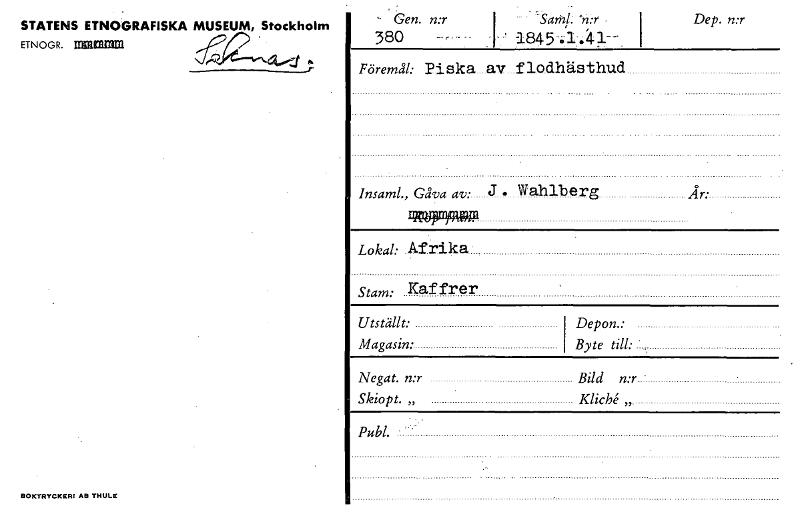 STATENS ETNOGRAFISKA MUSEUM, Stockholm
ETNOGR.
Saknas.
Gen. n:r
380
Saml. n:r
1845.1.41
Dep. n:r
Föremål: Piska av flodhästhud
Insaml., Gåva av: J. Wahlberg År:
Lokal: Afrika
Stam: Kaffrer
Utställt: Depon.:
Magasin: Byte till:
Negat. n:r Bild n:r
Skiopt. „ Kliché „
Publ.
BOKTRYCKERI AB THULE